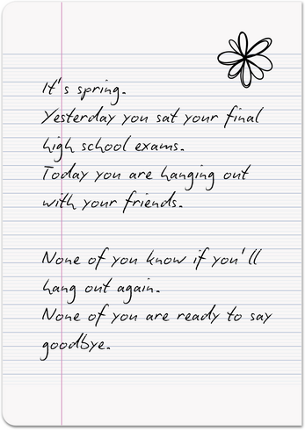 It's spring.
Yesterday you sat your final
high school exams.
Today you are hanging out
with your friends.
None of you know if you'll
hang out again.
None of you are ready to say
goodbye.